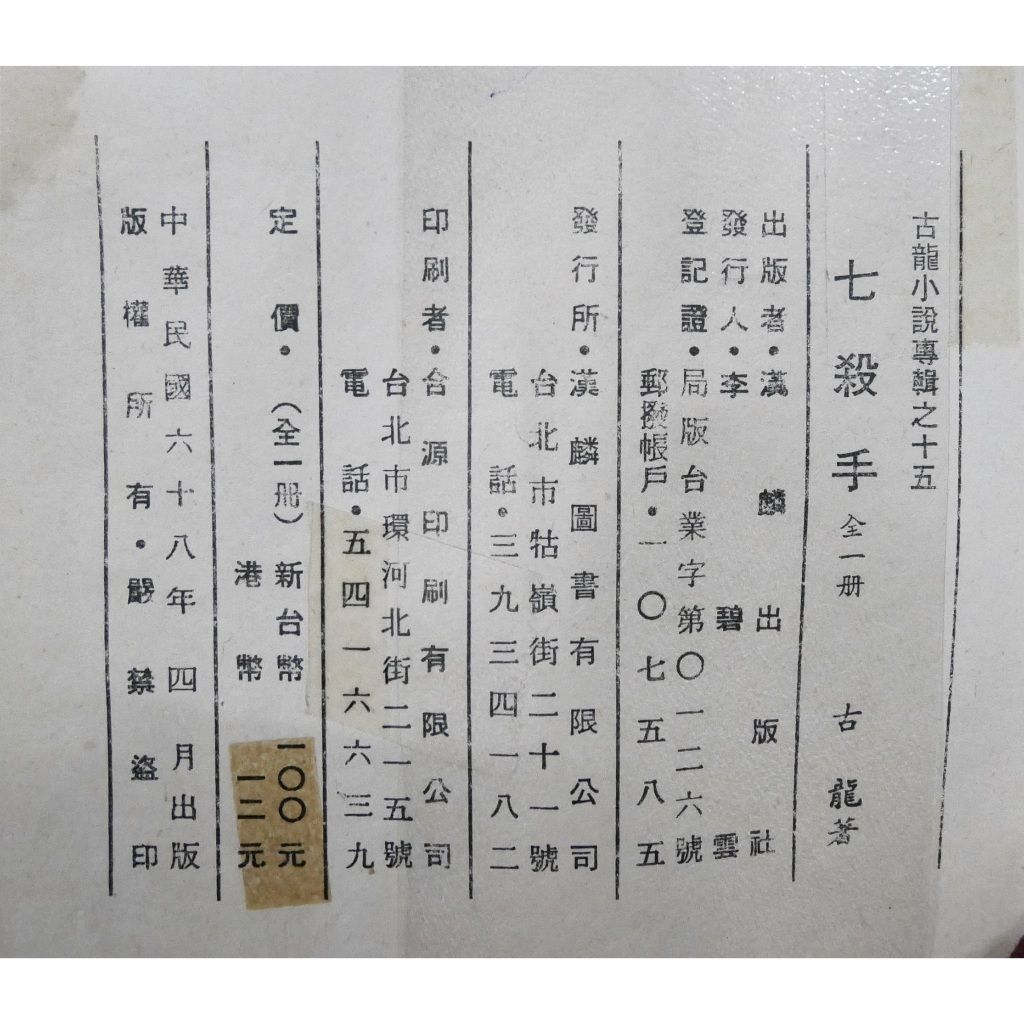 古龍小說專輯之十五
七殺手 全一册 古龍著
出版者・漢麟出版社
發行人・李碧雲
登記證・局版台業字第〇一二六號
郵撥帳戶・一〇七五八五
發行所・漢麟圖書有限公司
台北市牯嶺街二十一號
電話・三九三四一八二
印刷者・合源印刷有限公司
台北市環河北街二一五號
電話・五四一六六三九
定價・(全一册)新台幣一〇〇元
港幣一二元
中華民國六十八年四月出版
版權所有・嚴禁盜印